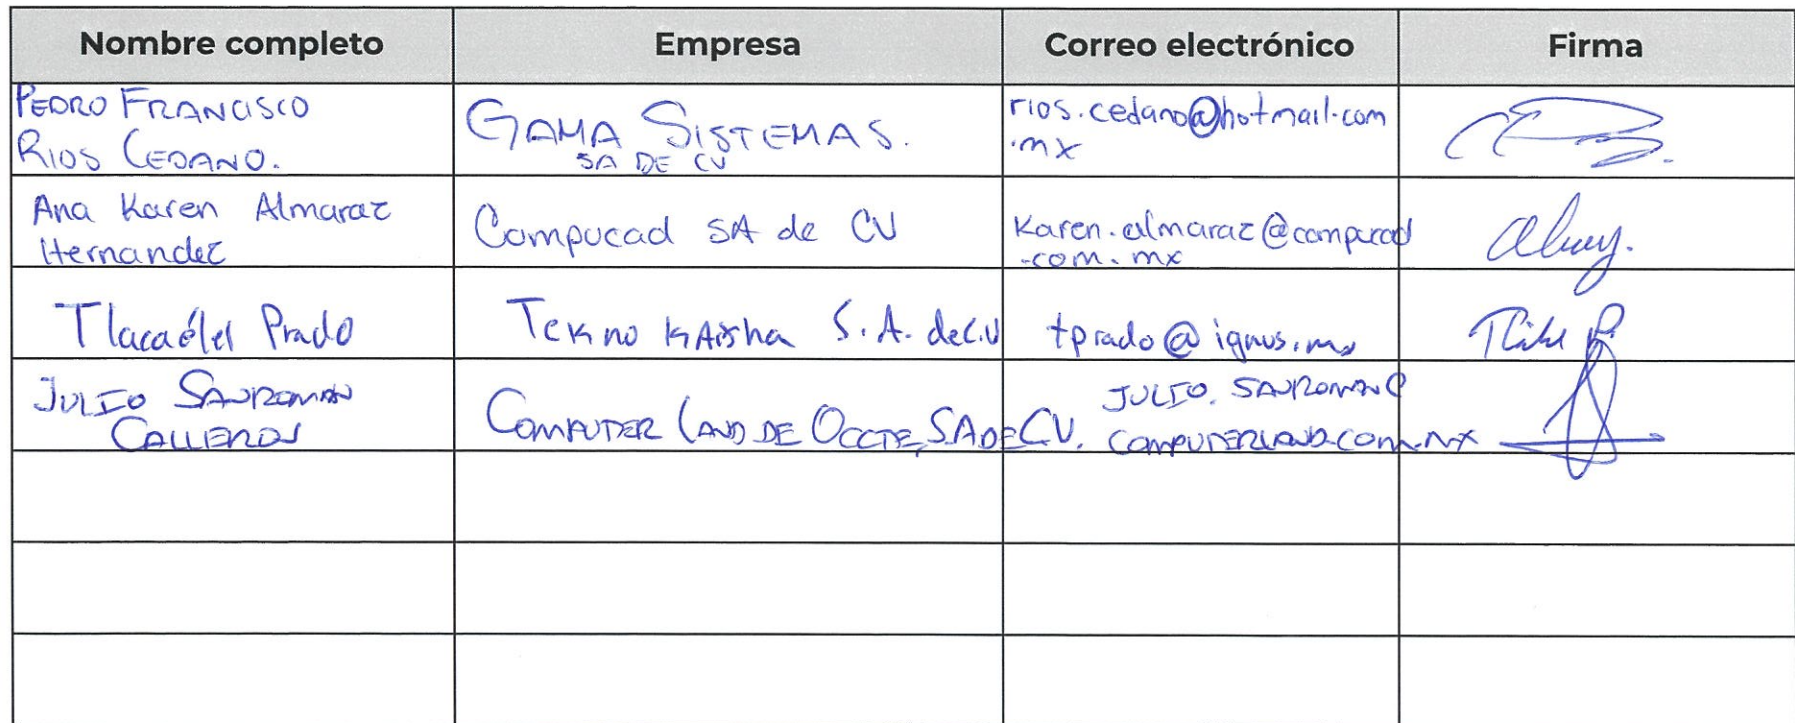 Nombre completo Empresa Correo electrónico Firma
PEDRO FRANCISCO
RIOS CEDANO.
GAMA SISTEMAS.
SA DE CV
rios.cedano@hotmail.com
.mx
Ana Karen Almaraz
Hernandez
Compucad SA de CV
karen.almaraz@compucad
.com.mx
Tlacaélel Prado
Tekno kAisha S.A. de C.V
tprado@ignus.mx
JULIO SANROMAN
CALLEROS
COMPUTER LAND DE OCCTE, SA DE CV.
JULIO.SANROMAN@
COMPUTERLAND.COM.MX